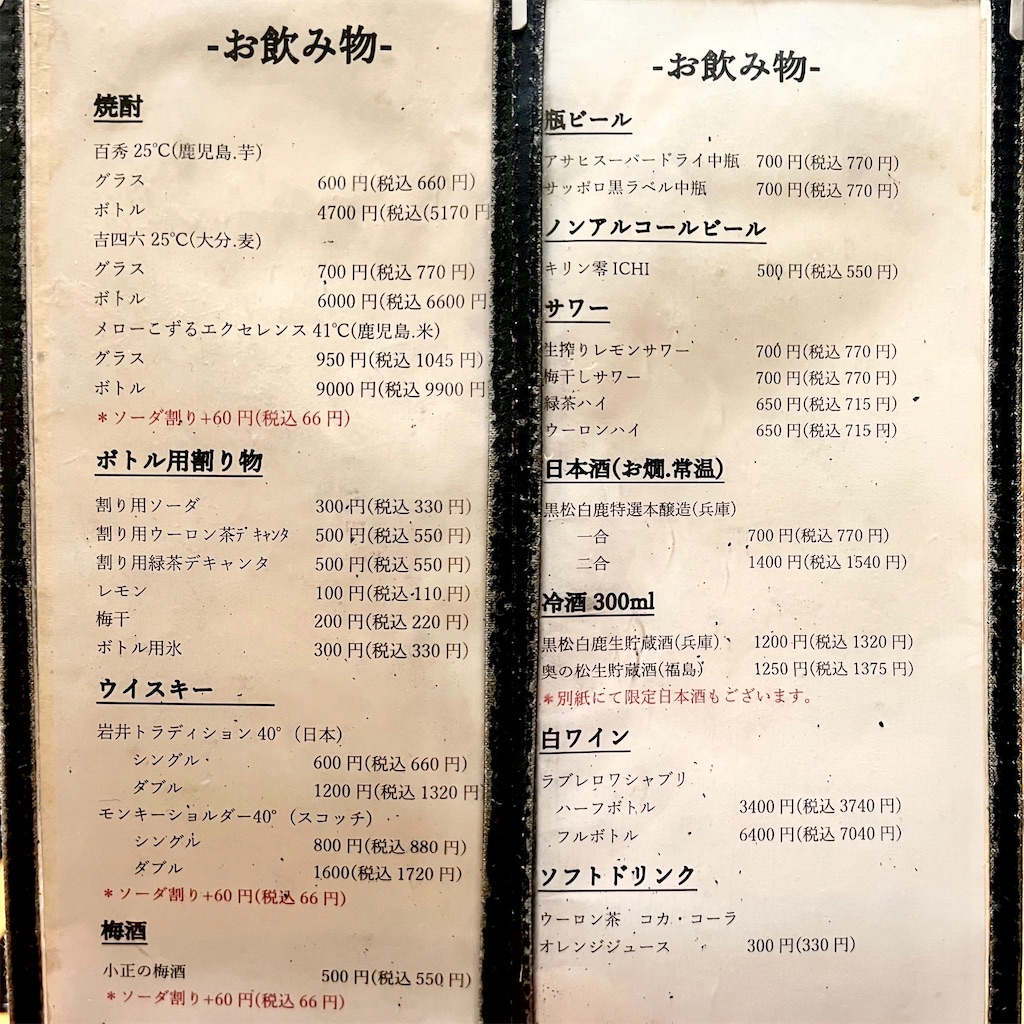 -お飲み物-
焼酎
百秀 25℃(鹿児島.芋)
グラス 600 円(税込 660 円)
ボトル 4700 円(税込(5170 円
吉四六 25℃(大分.麦)
グラス 700 円(税込 770 円)
ボトル 6000 円(税込 6600 円
メローこずるエクセレンス 41℃(鹿児島.米)
グラス 950 円(税込 1045 円)
ボトル 9000 円(税込 9900 円
＊ソーダ割り+60 円(税込 66 円)
ボトル用割り物
割り用ソーダ 300 円(税込 330 円)
割り用ウーロン茶ﾃﾞｷｬﾝﾀ 500 円(税込 550 円)
割り用緑茶デキャンタ 500 円(税込 550 円)
レモン 100 円(税込 110 円)
梅干 200 円(税込 220 円)
ボトル用氷 300 円(税込 330 円)
ウイスキー
岩井トラディション 40°（日本）
シングル 600 円(税込 660 円)
ダブル 1200 円(税込 1320 円)
モンキーショルダー40°（スコッチ）
シングル 800 円(税込 880 円)
ダブル 1600(税込 1720 円)
＊ソーダ割り+60 円(税込 66 円)
梅酒
小正の梅酒 500 円(税込 550 円)
＊ソーダ割り+60 円(税込 66 円)
-お飲み物-
瓶ビール
アサヒスーパードライ中瓶 700 円(税込 770 円)
サッポロ黒ラベル中瓶 700 円(税込 770 円)
ノンアルコールビール
キリン零 ICHI 500 円(税込 550 円)
サワー
生搾りレモンサワー 700 円(税込 770 円)
梅干しサワー 700 円(税込 770 円)
緑茶ハイ 650 円(税込 715 円)
ウーロンハイ 650 円(税込 715 円)
日本酒(お燗.常温)
黒松白鹿特選本醸造(兵庫)
一合 700 円(税込 770 円)
二合 1400 円(税込 1540 円)
冷酒 300ml
黒松白鹿生貯蔵酒(兵庫) 1200 円(税込 1320 円)
奥の松生貯蔵酒(福島) 1250 円(税込 1375 円)
＊別紙にて限定日本酒もございます。
白ワイン
ラブレロワシャブリ
ハーフボトル 3400 円(税込 3740 円)
フルボトル 6400 円(税込 7040 円)
ソフトドリンク
ウーロン茶　コカ・コーラ
オレンジジュース 300 円(330 円)